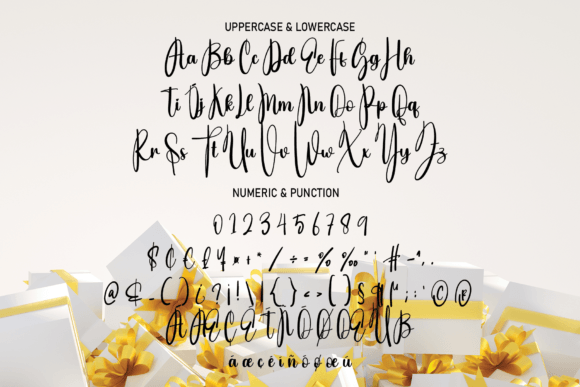 UPPERCASE & LOWERCASE
Aa Bb Cc Dd Ee Ff Gg Hh
Ii Jj Kk Ll Mm Nn Oo Pp Qq
Rr Ss Tt Uu Vv Ww Xx Yy Zz
NUMERIC & PUNCTION
0 1 2 3 4 5 6 7 8 9
$ ₡ € £ ¥ ¤ + * / ÷ = % ‰ " ' # - , .
@ & _ ( ) ¿ ? ¡ ! \ | { } < > [ ] § ¶ " ; : © ®
à Æ Ç Ê Ï Ñ Ö Ø Œ Ü ß
â æ ç ê ï ñ ô ø œ ü